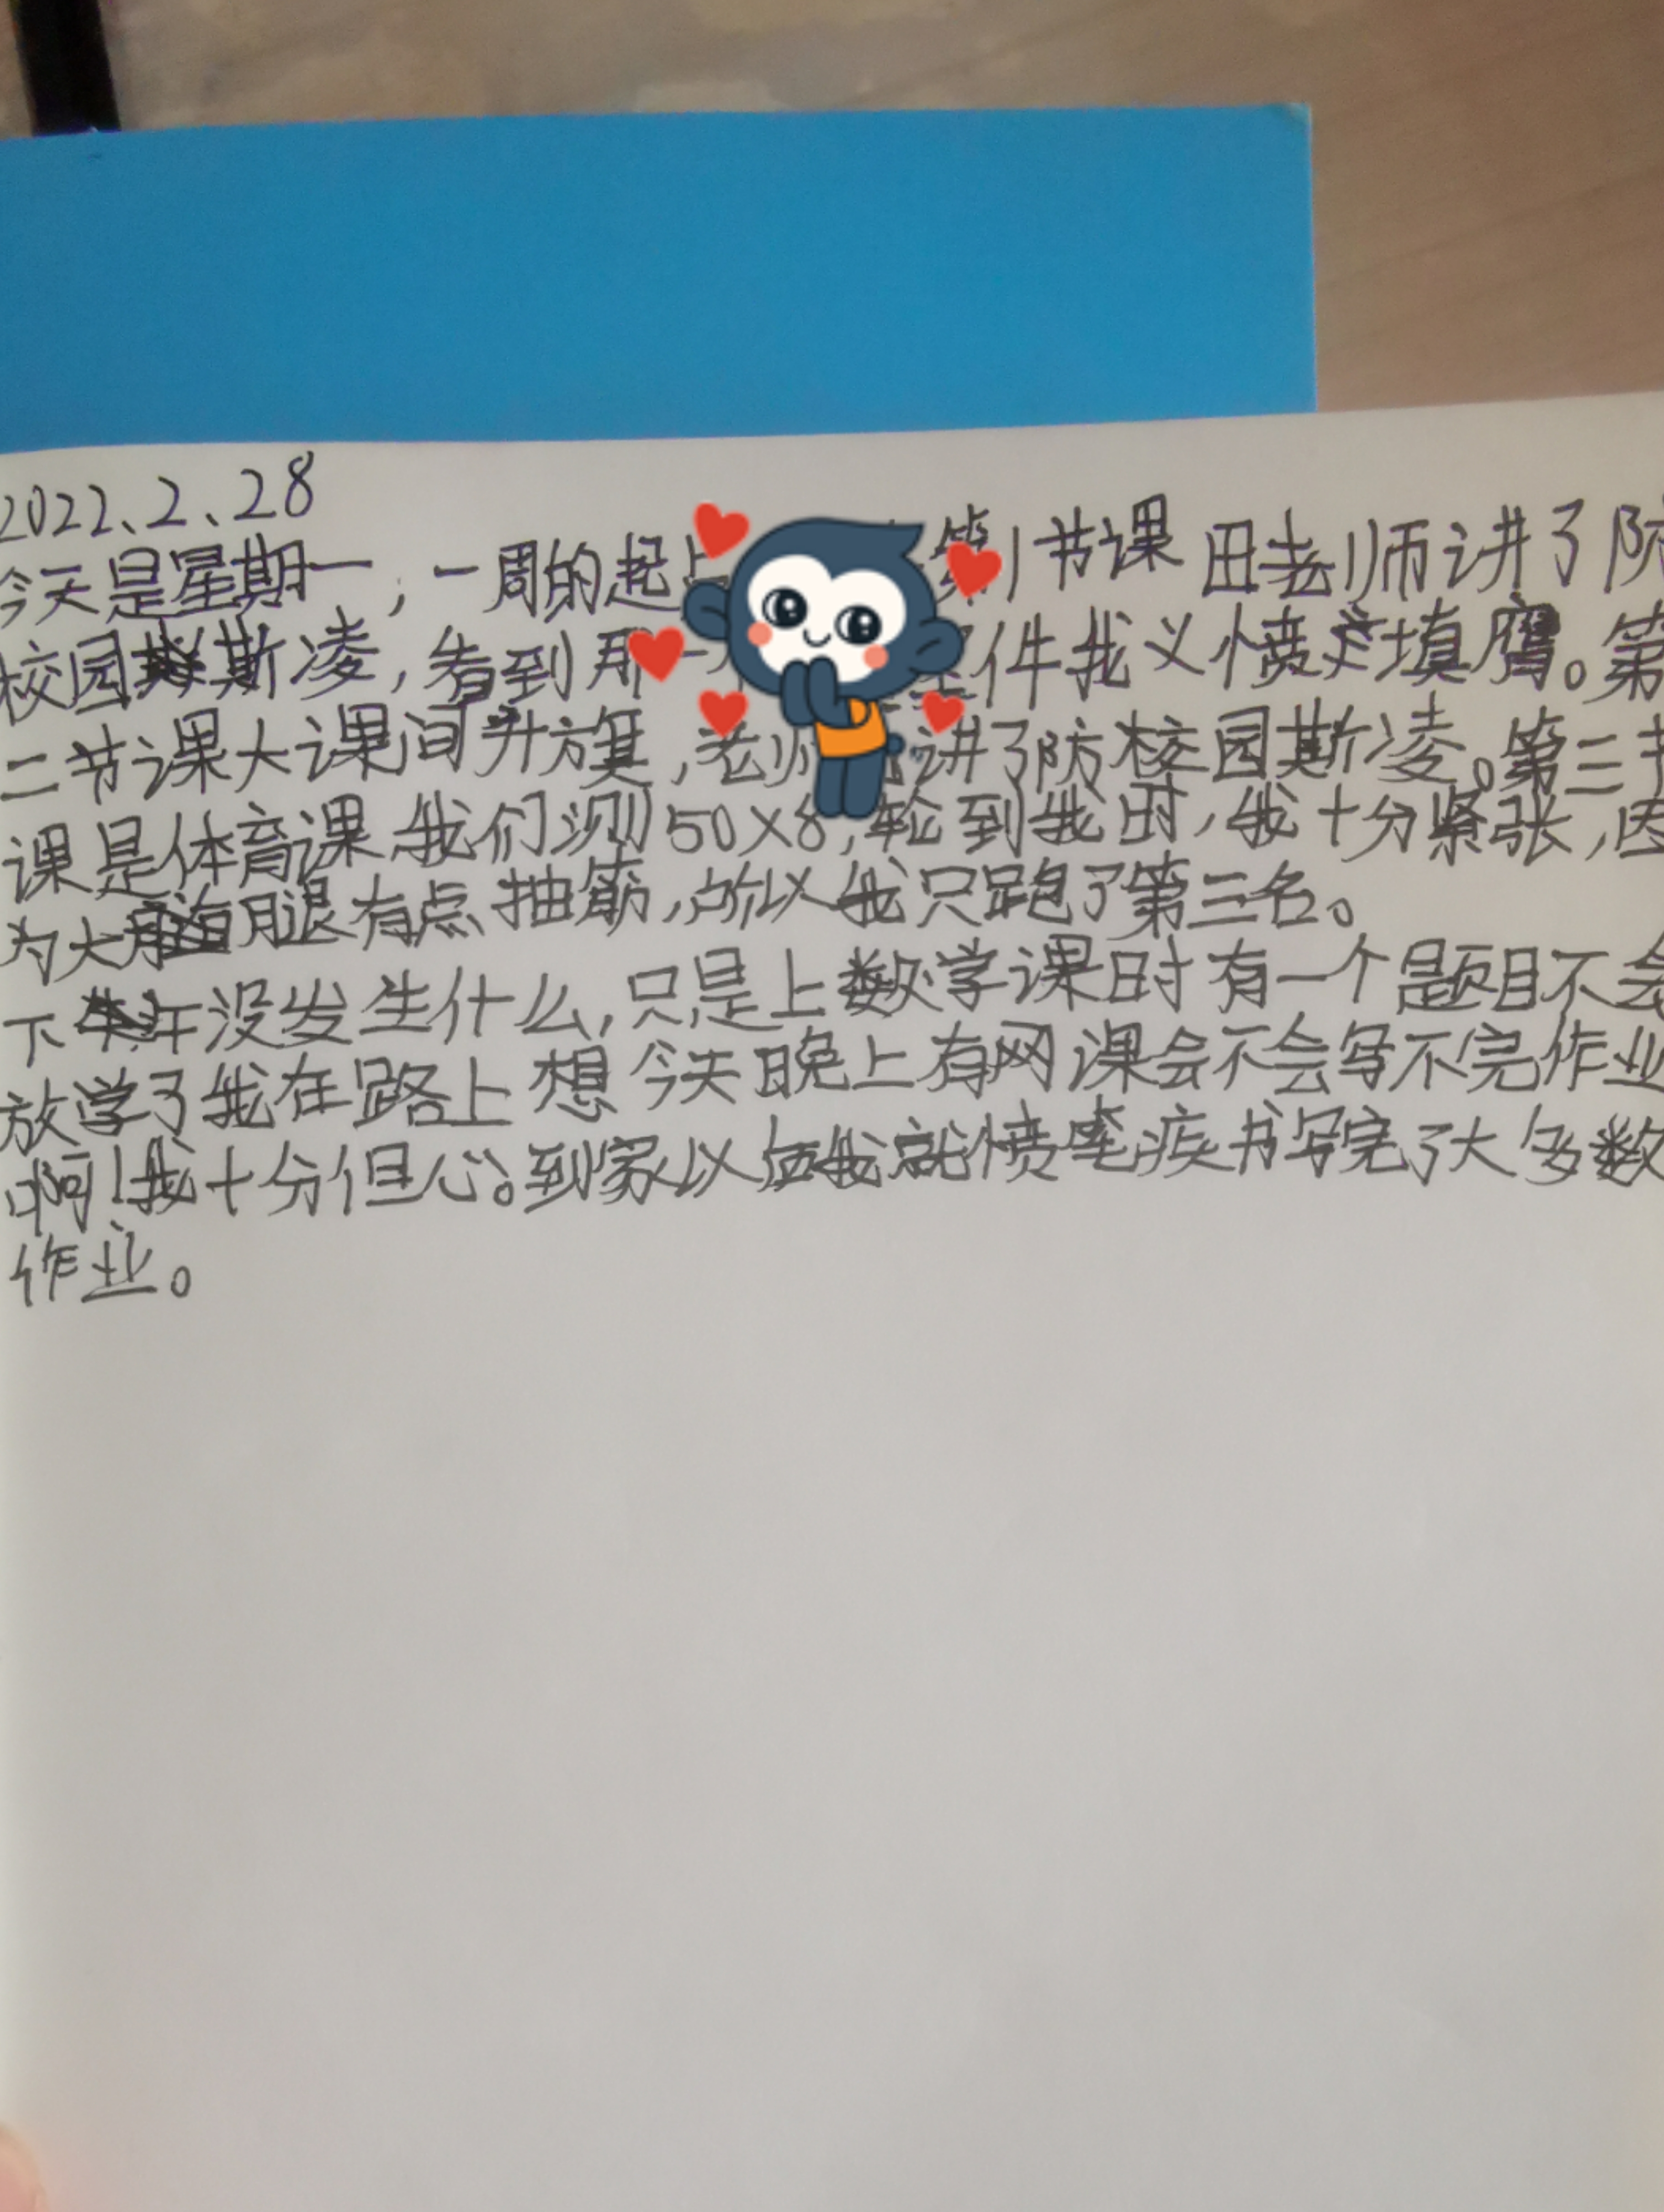 2022、2、28
今天是星期一，一周的起 第1节课田老师讲了防
校园斯凌，看到那一 件我义愤填膺。第
二节课大课间升旗，老师 讲了防校园斯凌。第三节
课是体育课、我们测50×8，轮到我时，我十分紧张，因
为大腿有点抽筋，所以我只跑了第三名。
下午没发生什么，只是上数学课时有一个题目不会
放学了我在路上想今天晚上有网课会不会写不完作业
啊！我十分但心。到家以后我就愤笔疾书写完了大多数
作业。